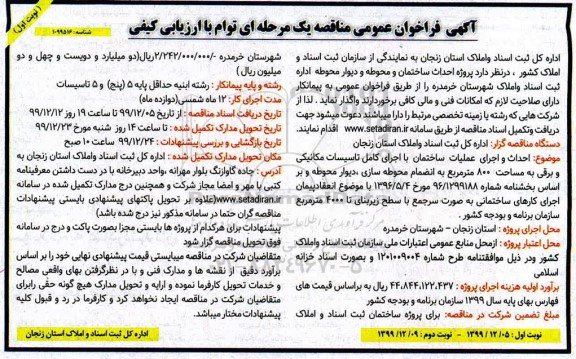 (نوبت اول)
آگهی فراخوان عمومی مناقصه یک مرحله ای توام با ارزیابی کیفی
شناسه: ۱۰۹۹۵۱۶
اداره کل ثبت اسناد واملاک استان زنجان به نمایندگی از سازمان ثبت اسناد و
املاک کشور ، درنظر دارد پروژه احداث ساختمان و محوطه و دیوار محوطه اداره
ثبت اسناد واملاک شهرستان خرمدره را از طریق فراخوان عمومی به پیمانکار
دارای صلاحیت لازم که امکانات فنی و مالی کافی برخوردارند واگذار نماید . لذا از
شرکت هایی که رشته یا زمینه تخصصی مرتبط را دارا میباشند دعوت میشود جهت
دریافت وتکمیل اسناد مناقصه از طریق سامانه www.setadiran.ir اقدام نمایند.
دستگاه مناقصه گزار: اداره کل ثبت اسناد واملاک استان زنجان
موضوع: احداث و اجرای عملیات ساختمان با اجرای کامل تاسیسات مکانیکی
و برقی به مساحت ۸۰۰ مترمربع به انضمام محوطه سازی ،دیوار محوطه و بر
اساس بخشنامه شماره ۹۶/۱۲۹۹۱۸۸ مورخ ۱۳۹۶/۵/۴ با موضوع انعقادپیمان
اجرای کارهای ساختمانی به صورت سرجمع با سطح زیربنای تا ۴۰۰۰ مترمربع
سازمان برنامه و بودجه کشور .
محل اجرای پروژه : استان زنجان – شهرستان خرمدره
محل اعتبار پروژه : ازمحل منابع عمومی اعتبارات ملی سازمان ثبت اسناد واملاک
کشور ودر ذیل موافقتنامه طرح شماره ۱۲۰۱۰۰۹۰۰۴ و بصورت اسناد خزانه
اسلامی
برآورد اولیه هزینه اجرای پروژه : ۴۴،۸۴۴،۱۲۲،۴۳۷ ریال به براساس قیمت های
فهارس بهای پایه سال ۱۳۹۹ سازمان برنامه و بودجه کشور
مبلغ تضمین شرکت در مناقصه: برای پروژه ساختمان ثبت اسناد و املاک
شهرستان خرمدره -/۲/۲۴۲/۰۰۰/۰۰۰ریال(دو میلیارد و دویست و چهل و دو
میلیون ریال)
رشته و پایه پیمانکار : رشته ابنیه حداقل پایه ۵ (پنج) و ۵ تاسیسات
مدت اجرای کار: ۱۲ ماه شمسی(دوازده ماه)
تاریخ دریافت اسناد مناقصه : از تاریخ ۹۹/۱۲/۰۵ تا ساعت ۱۹ روز ۹۹/۱۲/۱۲
تاریخ تحویل مدارک تکمیل شده : تا ساعت ۱۴ روز شنبه مورخ ۹۹/۱۲/۲۳
تاریخ بازگشایی و بررسی پیشنهادات : ۹۹/۱۲/۲۴ ساعت ۱۰ صبح
مکان تحویل مدارک تکمیل شده : اداره کل ثبت اسناد واملاک استان زنجان به
آدرس : جاده گاوازنگ بلوار مهرانه ،واحد دبیرخانه با در دست داشتن معرفینامه
کتبی با مهر و امضا مجاز شرکت و همچنین درج مدارک تکمیل شده در سامانه
www.setadiran.ir(علاوه بر تحویل پاکتهای پیشنهادی بایستی پیشنهادات
مناقصه گران حتما در سامانه مذکور نیز درج شده باشد)
پیشنهادات برای هرکدام از پروژه ها بایستی مجزا بصورت پاکت و درج در سامانه
فوق تحویل مناقصه گزار شود
متقاضیان شرکت در مناقصه میبایستی قیمت پیشنهادی نهایی خود را بر اساس
برآورد دقیق از نقشه ها و مدارک فنی و با در نظرگرفتن بهای واقعی مصالح
و خدمات تحویل کارفرما نموده و ارایه و تحویل مدارک هیچ گونه حقی رابرای
متقاضیان شرکت در مناقصه ایجاد نخواهد کرد و کارفرما در رد و قبول کلیه
پیشنهادات مختار میباشد.
نوبت اول: ۰۵/ ۱۲/ ۱۳۹۹ – نوبت دوم : ۰۹/ ۱۲/ ۱۳۹۹
اداره کل ثبت اسناد و املاک استان زنجان